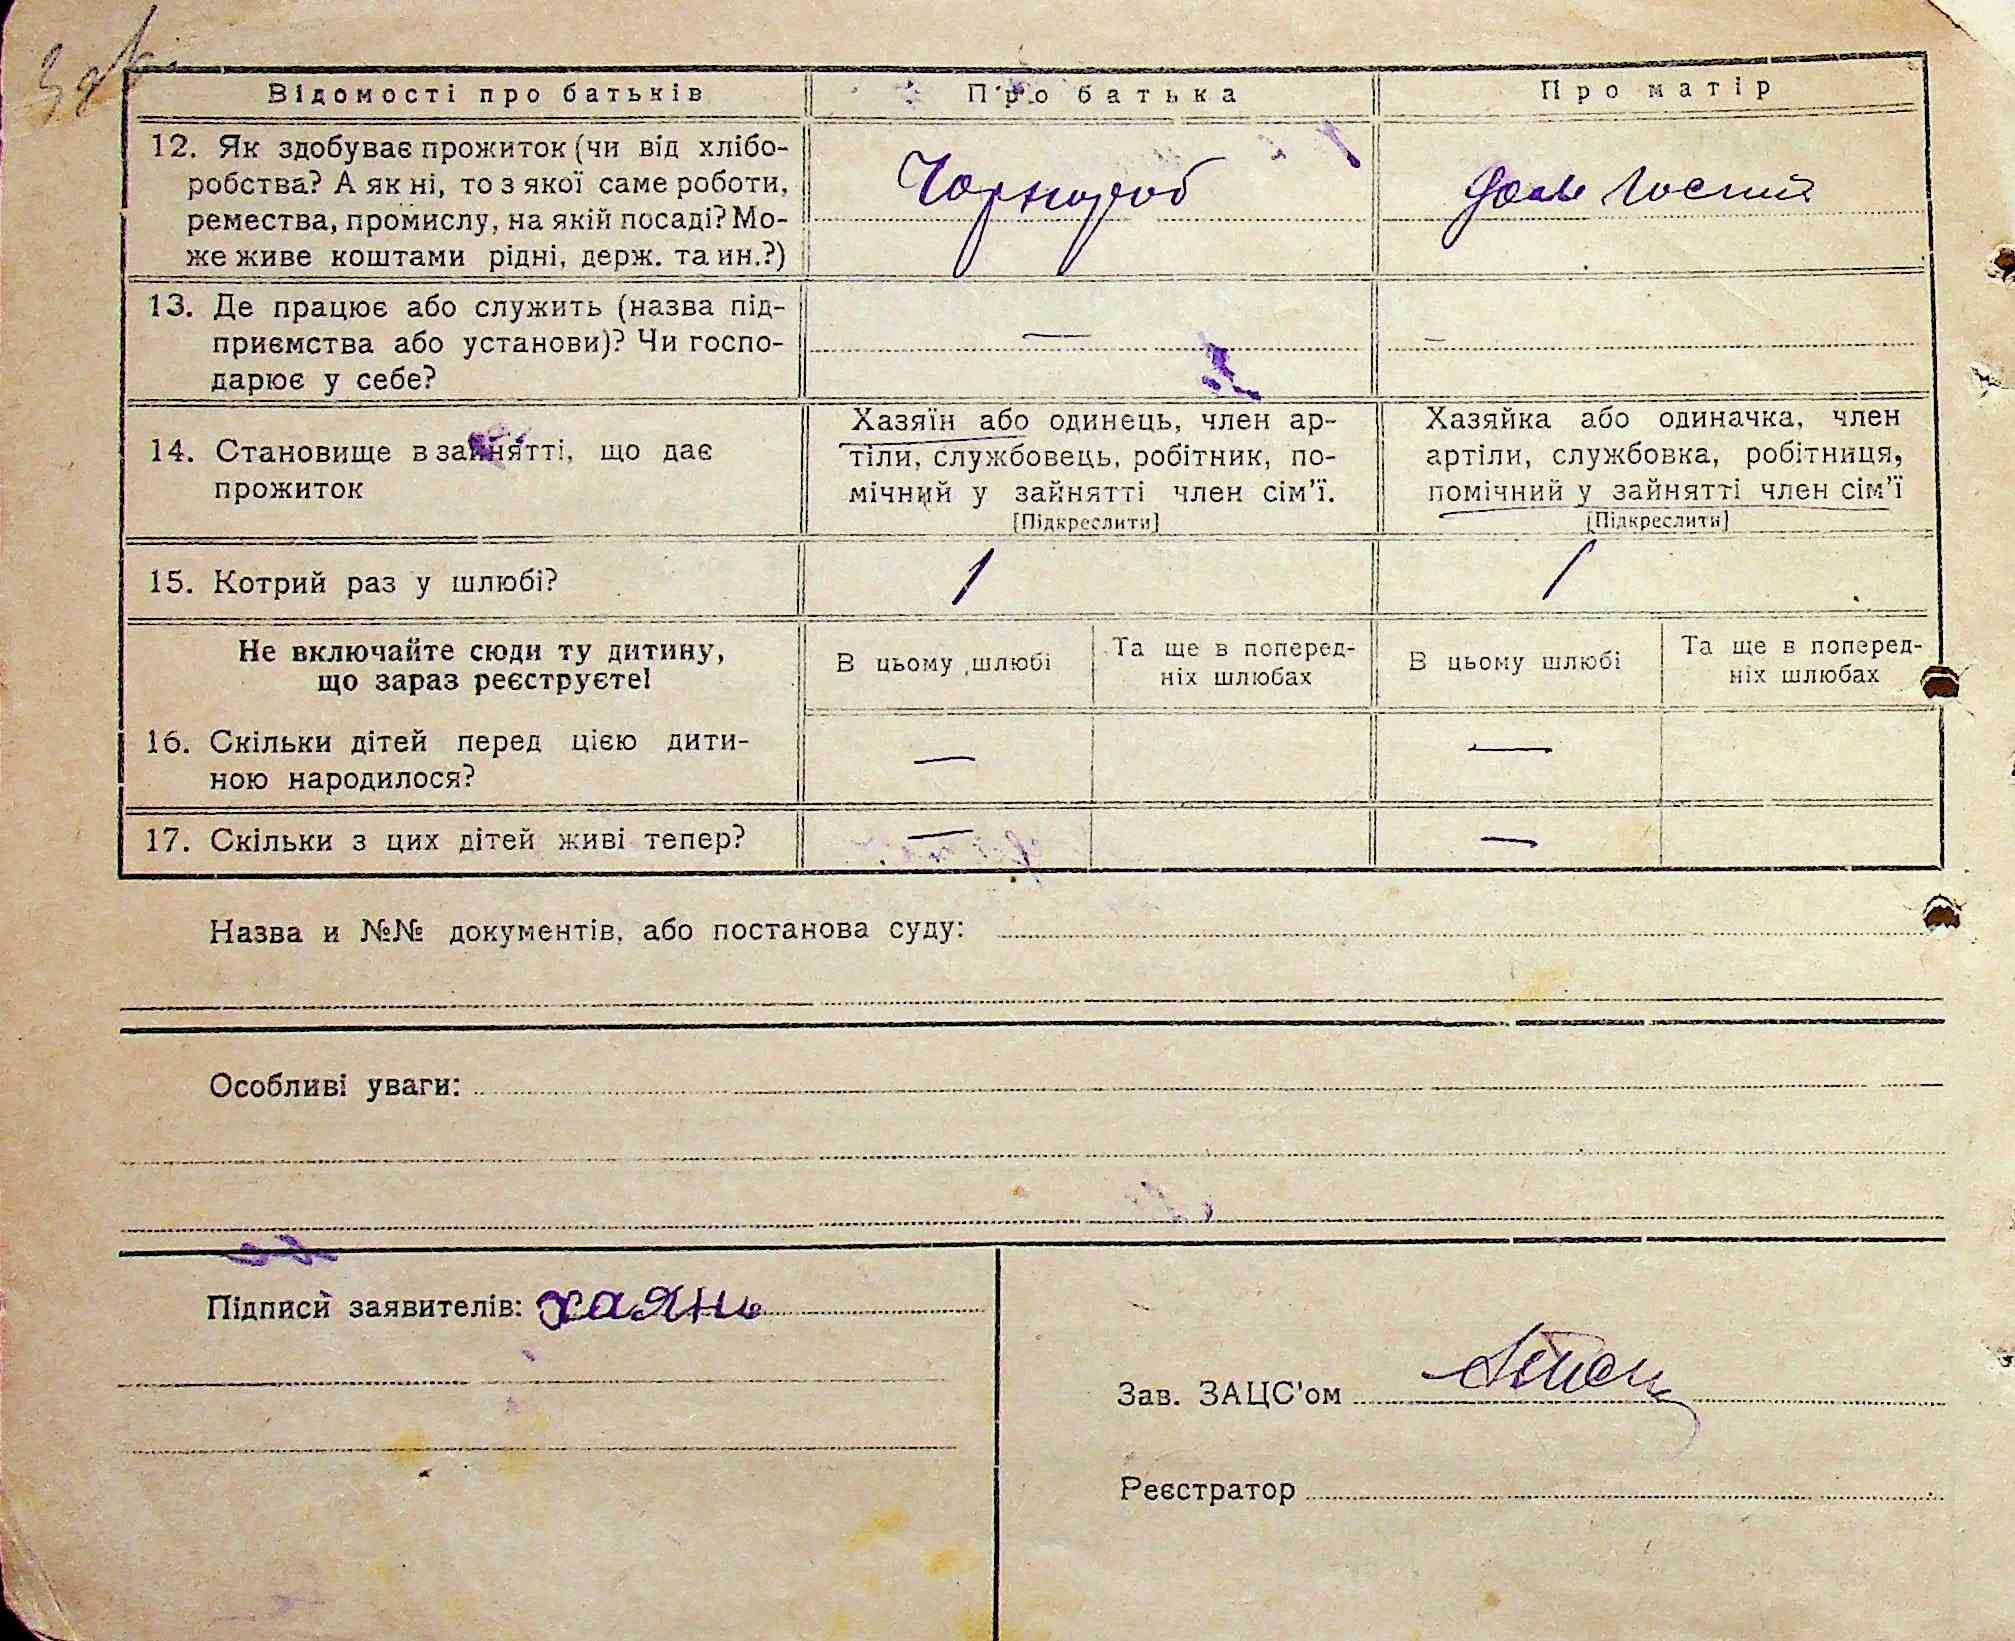 Відомості про батьків
Про батька
Про матір
12. Як здобуває прожиток (чи від хлібо-
робства? А як ні, то з якої саме роботи,
ремества, промислу, на якій посаді? Мо-
же живе коштами рідні, держ. та ин.?)
Чорнороб
13. Де працює або служить (назва під-
приємства або установи)? Чи госпо-
дарює у себе?
—
—
14. Становище в зайнятті, що дає
прожиток
Хазяїн або одинець, член ар-
тіли, службовець, робітник, по-
мічний у зайнятті член сім’ї.
[Підкреслити]
Хазяйка або одиначка, член
артіли, службовка, робітниця,
помічний у зайнятті член сім’ї
[Підкреслити]
15. Котрий раз у шлюбі?
1
1
Не включайте сюди ту дитину,
що зараз реєструєте!
В цьому шлюбі
Та ще в поперед-
ніх шлюбах
В цьому шлюбі
Та ще в поперед-
ніх шлюбах
16. Скільки дітей перед цією дити-
ною народилося?
—
—
17. Скільки з цих дітей живі тепер?
—
—
Назва и №№ документів, або постанова суду:
Особливі уваги:
Підписи заявителів: хаянь
Зав. ЗАЦС’ом
Реєстратор